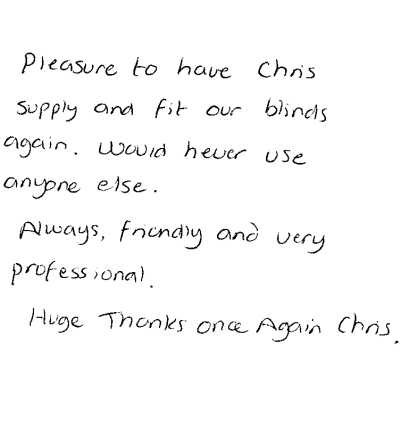 Pleasure to have Chris
supply and fit our blinds
again. Would never use
anyone else.
Always, friendly and very
professional.
Huge Thanks once Again Chris.